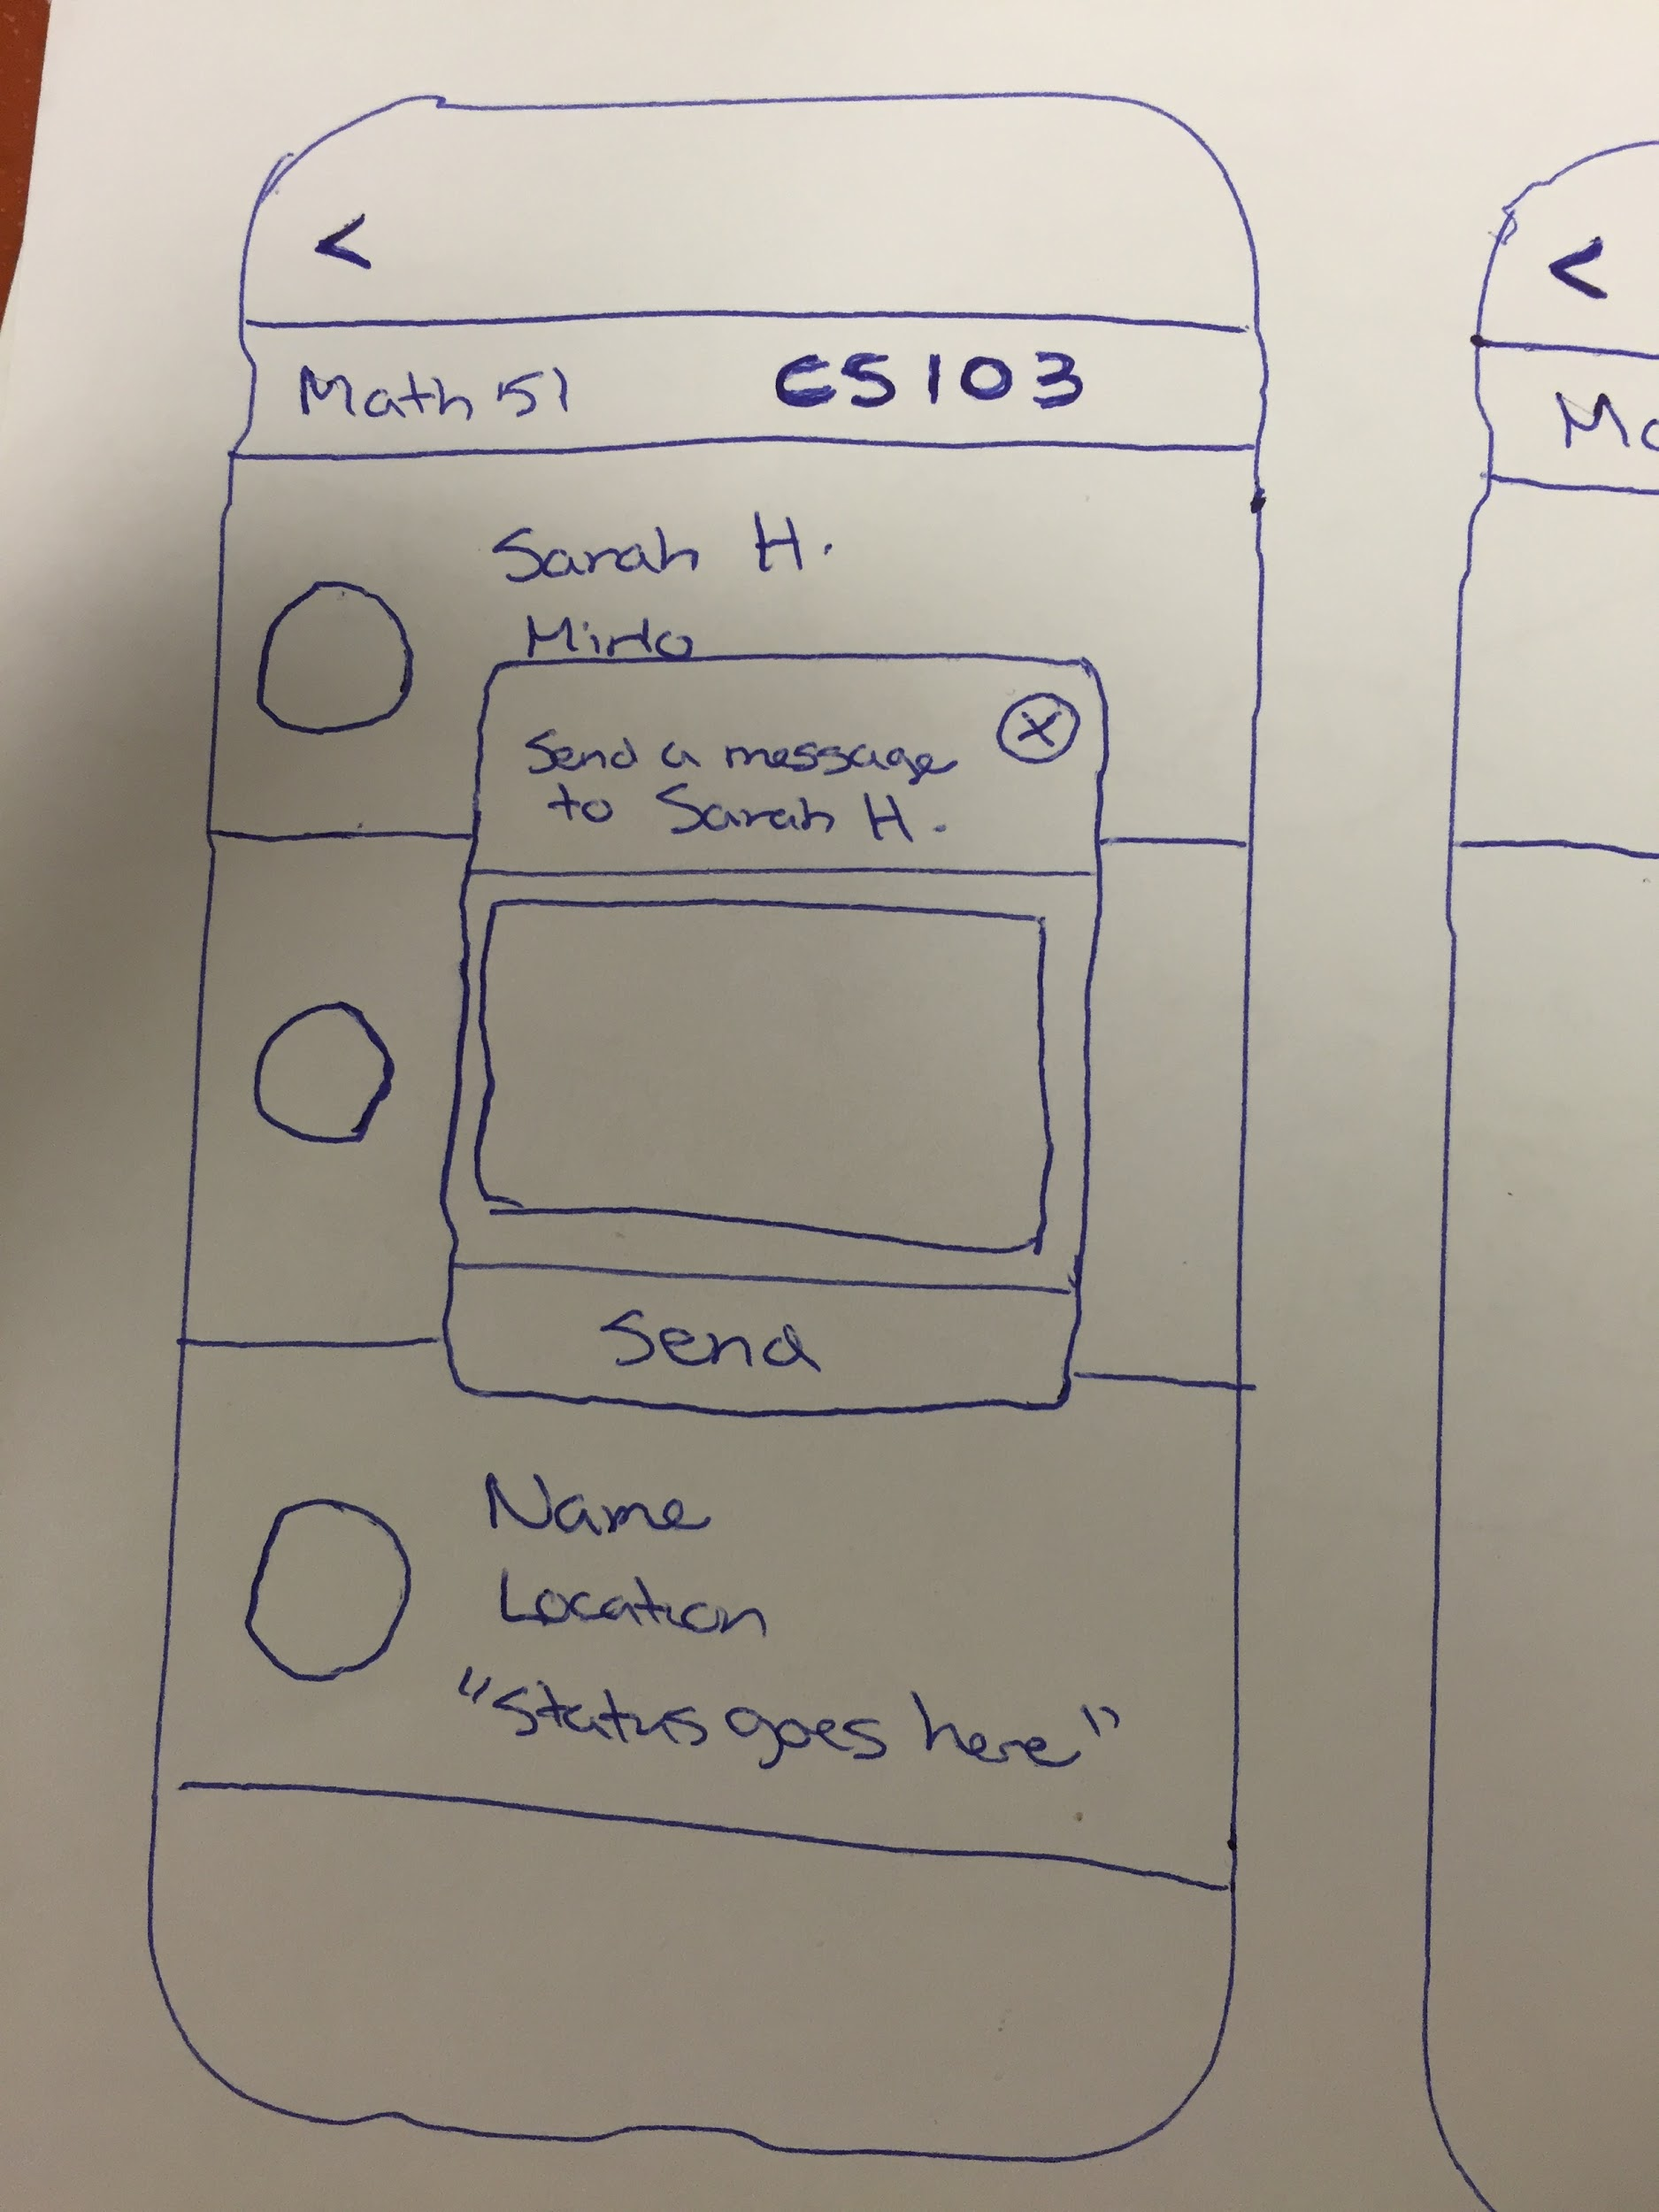 <
Math 51 CS103
Sarah H.
Mirlo
Send a message
to Sarah H.
X
Send
Name
Location
"Status goes here"
<